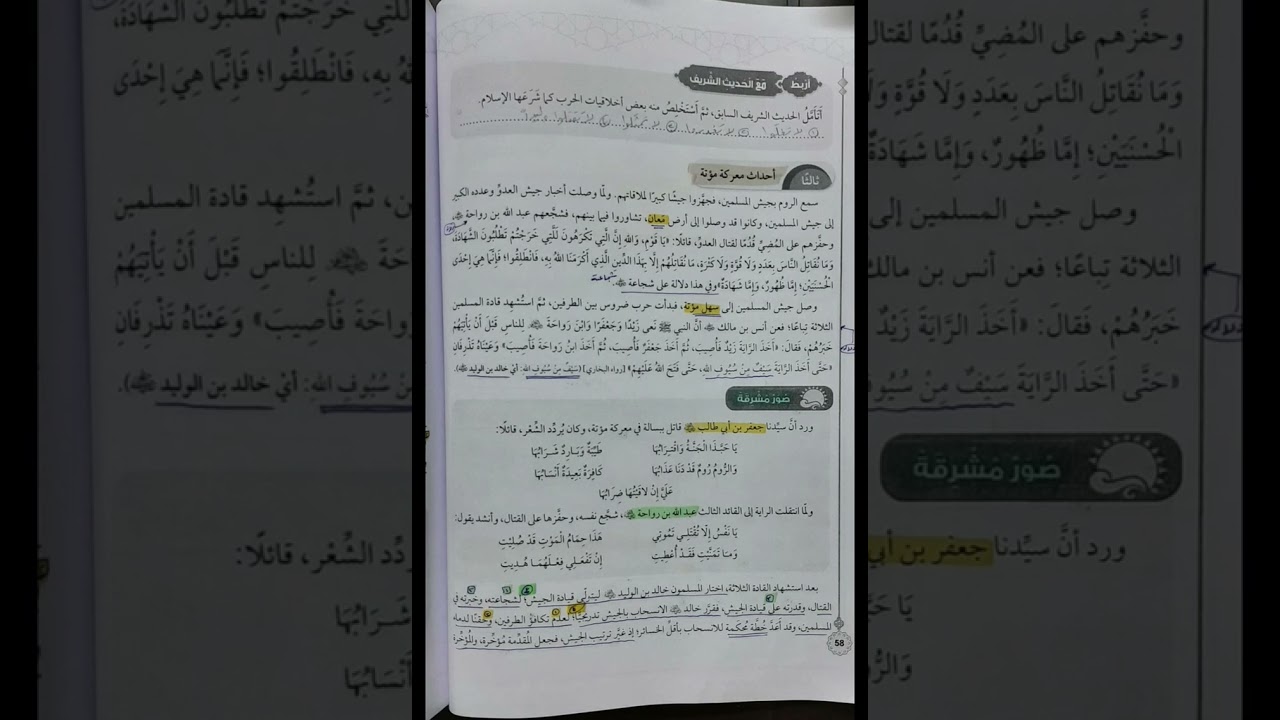 أربط مع الحديث الشريف
أَتَأَمَّلُ الحديث الشريف السابق، ثمَّ أَسْتَخْلِصُ منه بعض أخلاقيات الحرب كما شَرَعَها الإسلام.
ثالثًا أحداث معركة مؤتة
سمع الروم بجيش المسلمين، فجهَّزوا جيشًا كبيرًا لملاقاتهم. ولمَّا وصلت أخبار جيش العدوِّ وعدده الكبير
إلى جيش المسلمين، وكانوا قد وصلوا إلى أرض مَعان، تشاوروا فيما بينهم، فشجَّعهم عبد الله بن رواحة
وحفَّزهم على المُضِيِّ قُدُمًا لقتال العدوِّ، قائلًا: «يَا قَوْمِ، وَاللهِ إِنَّ الَّتِي تَكْرَهُونَ لَلَّتِي خَرَجْتُمْ تَطْلُبُونَ الشَّهَادَةَ،
وَمَا نُقَاتِلُ النَّاسَ بِعَدَدٍ وَلَا قُوَّةٍ وَلَا كَثْرَةٍ، مَا نُقَاتِلُهُمْ إِلَّا بِهَذَا الدِّينِ الَّذِي أَكْرَمَنَا اللهُ بِهِ، فَانْطَلِقُوا؛ فَإِنَّمَا هِيَ إِحْدَى
الْحُسْنَيَيْنِ؛ إِمَّا ظُهُورٌ، وَإِمَّا شَهَادَةٌ» وفي هذا دلالة على شجاعة
وصل جيش المسلمين إلى سهل مؤتة، فبدأت حرب ضروس بين الطرفين، ثمَّ استُشهِد قادة المسلمين
الثلاثة تِباعًا؛ فعن أنس بن مالك أنَّ النبي ﷺ نعى زَيْدًا وَجَعْفَرًا وَابْنَ رَوَاحَةَ للناس قَبْلَ أَنْ يَأْتِيَهُمْ
خَبَرُهُمْ، فَقالَ: «أَخَذَ الرَّايَةَ زَيْدٌ فَأُصِيبَ، ثُمَّ أَخَذَ جَعْفَرٌ فَأُصِيبَ، ثُمَّ أَخَذَ ابْنُ رَوَاحَةَ فَأُصِيبَ» وَعَيْنَاهُ تَذْرِفَانِ
«حَتَّى أَخَذَ الرَّايَةَ سَيْفٌ مِنْ سُيُوفِ اللهِ، حَتَّى فَتَحَ اللهُ عَلَيْهِمْ» [رواه البخاري] (سَيْفٌ مِنْ سُيُوفِ الله: أيْ خالد بن الوليد).
صُوَرٌ مُشْرِقَةٌ
ورد أنَّ سيِّدنا جعفر بن أبي طالب قاتل ببسالة في معركة مؤتة، وكان يُردِّد الشِّعْر، قائلًا:
يَا حَبَّذَا الْجَنَّةُ وَاقْتِرَابُهَا طَيِّبَةٌ وَبَارِدٌ شَرَابُهَا
وَالرُّومُ رُومٌ قَدْ دَنَا عَذَابُهَا كَافِرَةٌ بَعِيدَةٌ أَنْسَابُهَا
عَلَيَّ إِنْ لاقَيْتُهَا ضِرَابُهَا
ولمَّا انتقلت الراية إلى القائد الثالث عبد الله بن رواحة، شجَّع نفسه، وحفَّزها على القتال، وأنشد يقول:
يَا نَفْسُ إِلَّا تُقْتَلِي تَمُوتِي هَذَا حِمَامُ الْمَوْتِ قَدْ صُلِيتِ
وَمَا تَمَنَّيْتِ فَقَدْ أُعْطِيتِ إِنْ تَفْعَلِي فِعْلَهُمَا هُدِيتِ
بعد استشهاد القادة الثلاثة، اختار المسلمون خالد بن الوليد ليتولّى قيادة الجيش؛ لشجاعته، وخبرته في
القتال، وقدرته على قيادة الجيش، فقرَّر خالد الانسحاب بالجيش تدريجيًّا؛ لعدم تكافؤ الطرفين، وحقنًا لدماء
المسلمين، وقد أعدَّ خُطَّة مُحكَمة للانسحاب بأقلِّ الخسائر؛ إذ غيَّر ترتيب الجيش، فجعل المُقدِّمة مُؤخِّرة، والمُؤخِّرة
58